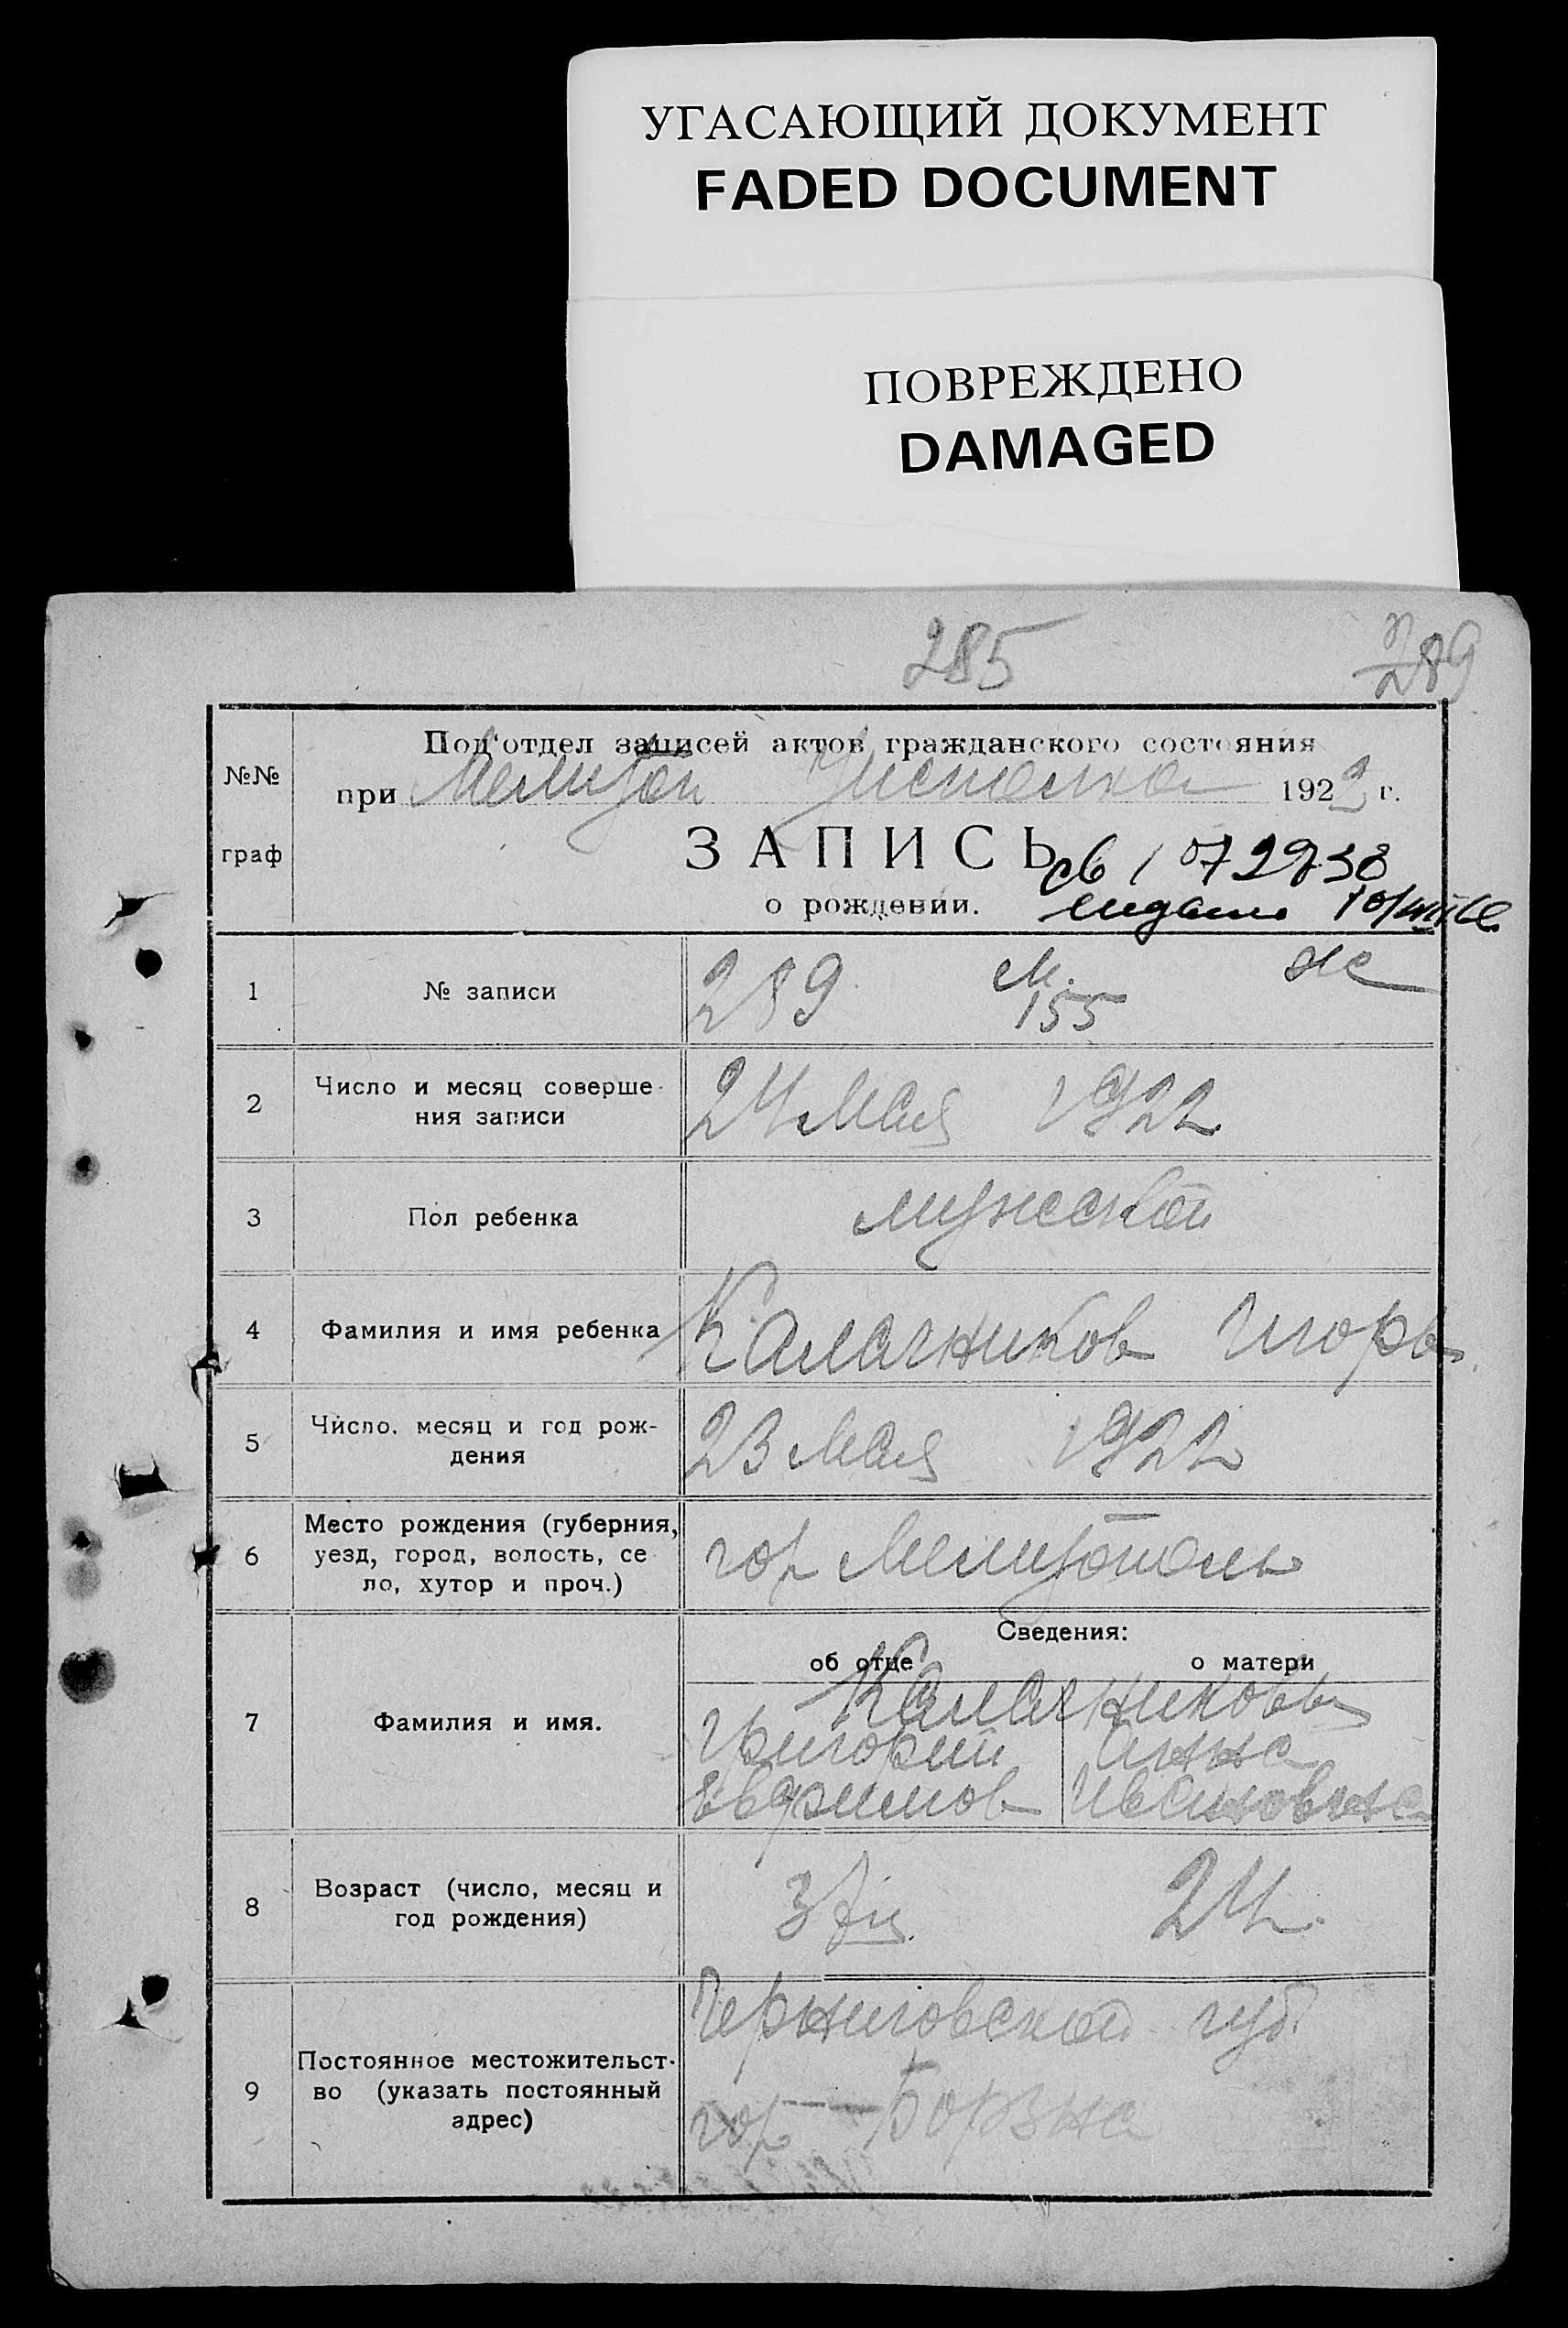 УГАСАЮЩИЙ ДОКУМЕНТ
FADED DOCUMENT
ПОВРЕЖДЕНО
DAMAGED
285
289
Под'отдел записей актов гражданского состояния
№№ граф
при Мелитоп 1922 г.
ЗАПИСЬ
о рождении.
св 1 072238
выдано
1 № записи 289 м. 155 ж
2 Число и месяц соверше-
ния записи 24 Мая 1922
3 Пол ребенка мужской
4 Фамилия и имя ребенка Калачников Игорь
5 Число, месяц и год рож-
дения 23 Мая 1922
6 Место рождения (губерния,
уезд, город, волость, се
ло, хутор и проч.) гор Мелитополь
Сведения:
об отце о матери
7 Фамилия и имя. Калачниковы
Григорий Анна
Евфимов Ивановна
8 Возраст (число, месяц и
год рождения) 37 24
9 Постоянное местожительст-
во (указать постоянный
адрес)
Черниговской губ
гор Борзна